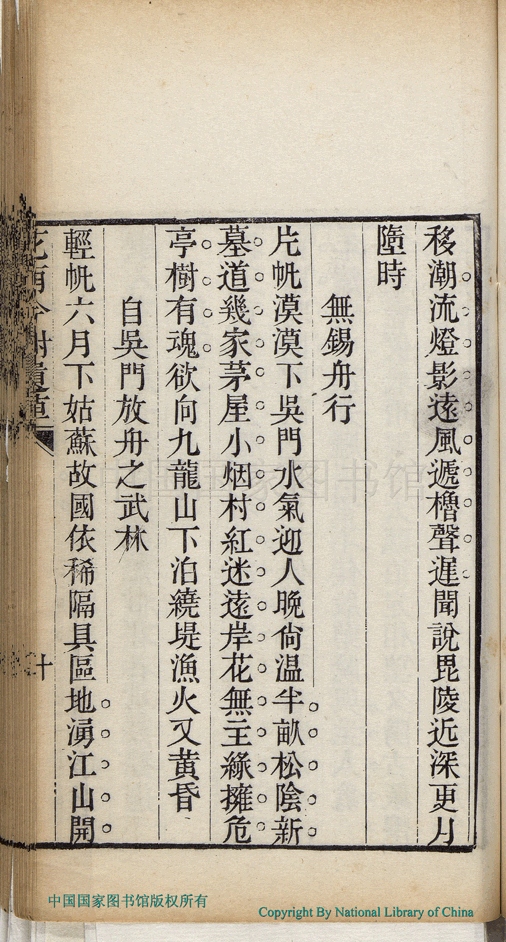 移潮流燈影遠風遞櫓聲遲聞說毘陵近深更月
墮時
無錫舟行
片帆漠漠下吳門水氣迎人晚尙溫半畝松陰新
墓道幾家茅屋小烟村紅迷遠岸花無主綠擁危
亭樹有魂欲向九龍山下泊繞堤漁火又黃昏
自吳門放舟之武林
輕帆六月下姑蘇故國依稀隔具區地湧江山開
十
中国国家图书馆
中国国家图书馆版权所有
Copyright By National Library of China